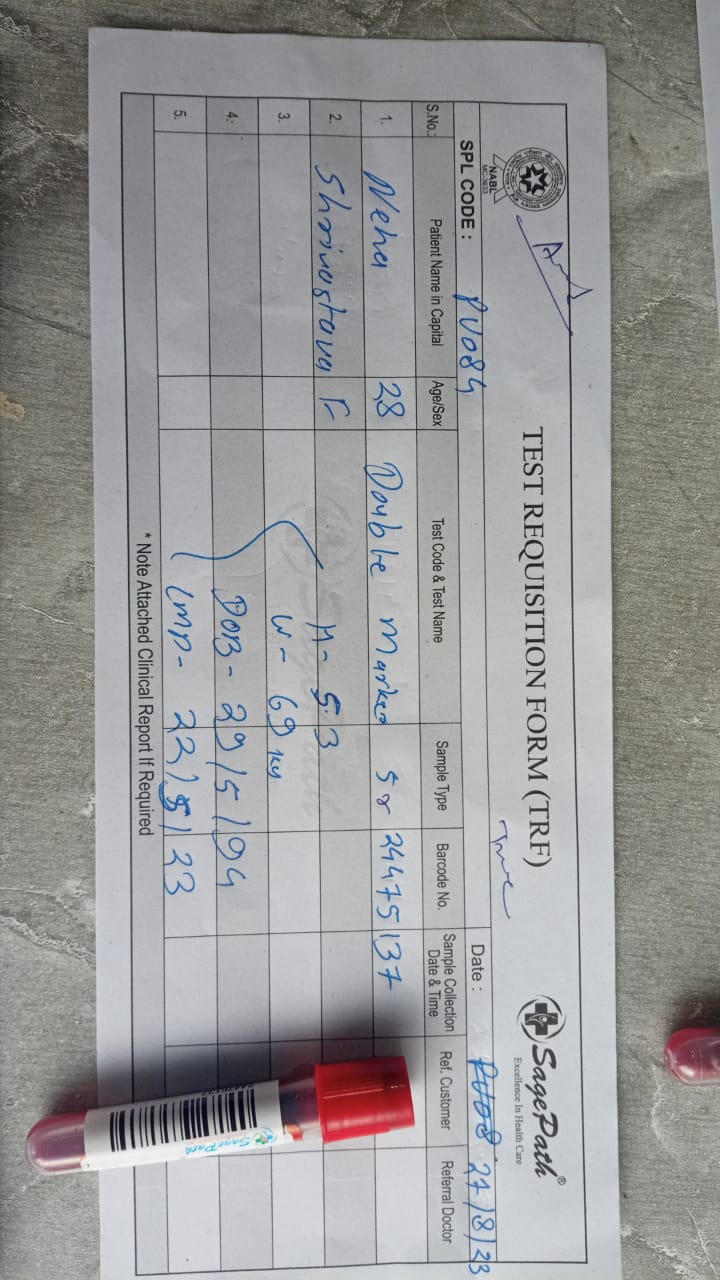 TEST REQUISITION FORM (TRF)
NABL
SagePath®
Excellence In Health Care
SPL CODE : PV084
Date : 27/8/23
S.No.: Patient Name in Capital Age/Sex Test Code & Test Name Sample Type Barcode No. Sample Collection Date & Time Ref. Customer Referral Doctor
1. Neha 28 Double Marker Sr 24475137
2. Shrivastava F H- 5.3
3. W- 69 kg
4. DOB- 29/5/94
5. LMP- 22/5/23
* Note Attached Clinical Report If Required
SagePath